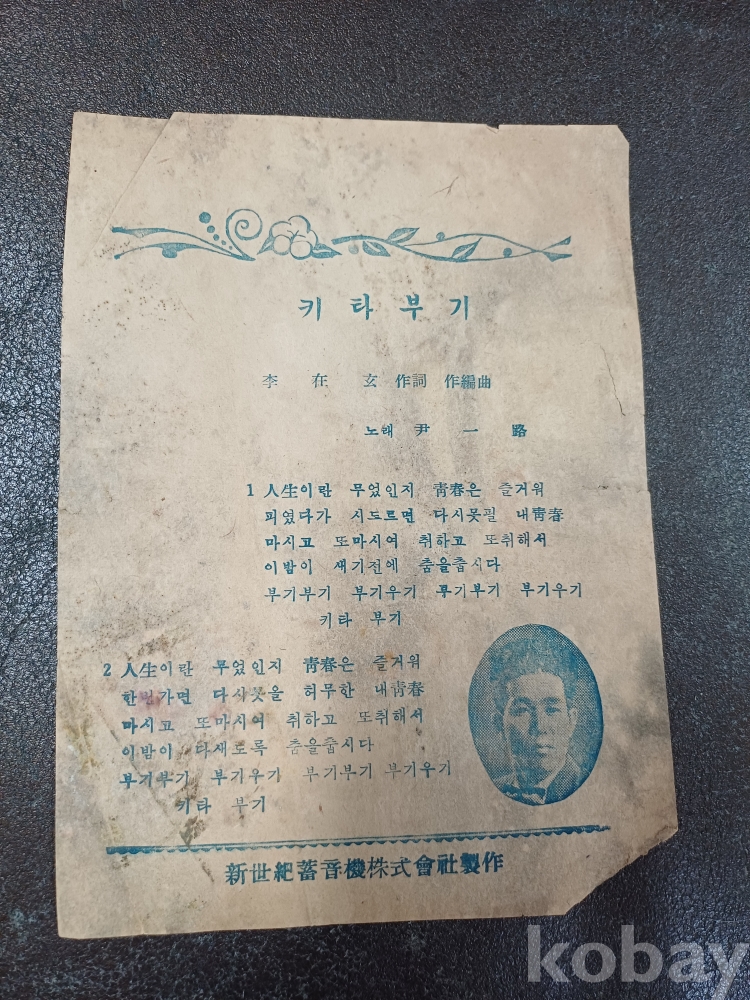 키타부기
李在玄 作詞 作編曲
노래 尹一路
1 人生이란 무었인지 靑春은 즐거워
피였다가 시드르면 다시못필 내靑春
마시고 또마시여 취하고 또취해서
이밤이 새기전에 춤을춥시다
부기부기 부기우기 부기부기 부기우기
키타 부기
2 人生이란 무었인지 靑春은 즐거워
한번가면 다시못올 허무한 내靑春
마시고 또마시여 취하고 또취해서
이밤이 다새도록 춤을춥시다
부기부기 부기우기 부기부기 부기우기
키타 부기
新世紀蓄音機株式會社製作
kobay